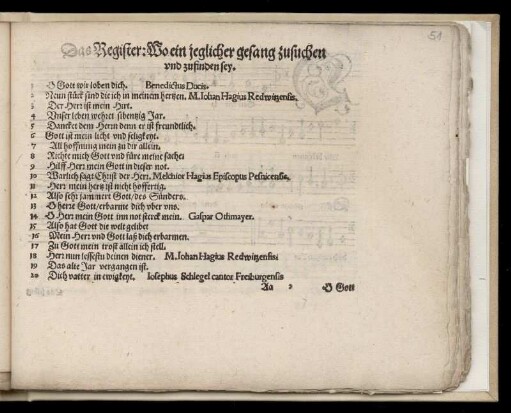 51
Das Register: Wo ein jeglicher gesang zusuchen
vnd zufinden sey.
1 O Gott wir loben dich. Benedictus Ducis.
2 Neun stück sind die ich in meinem hertzen. M. Iohan Hagius Redwitzensis.
3 Der Herr ist mein Hirt.
4 Vnser leben wehret sibentzig Jar.
5 Dancket dem Herrn denn er ist freundlich.
6 Gott ist mein licht vnd seligkeyt.
7 All hoffnung mein zu dir allein.
8 Richte mich Gott vnd füre meine sache.
9 Hilff Herr mein Gott in dieser not.
10 Warlich sagt Christ der Herr. Melchior Hagius Episcopus
11 Herr mein hertz ist nicht hoffertig.
12 Also sehr jammert Gott des Sünders.
13 O herre Gott erbarme dich vber vns.
14 O Herr mein Gott inn not steck mein. Gaspar Othmayer.
15 Also hat Gott die welt geliebt
16 Mein Herr vnd Gott laß dich erbarmen.
17 Zu Gott mein trost allein ich stell.
18 Herr nun lessestu deinen diener. M. Iohan Hagius Redwitzensis.
19 Das alte Jar vergangen ist.
20 Dich vatter in ewigkeyt. Iosephus Schlegel cantor Freiburgensis
Aa 2 O Gott